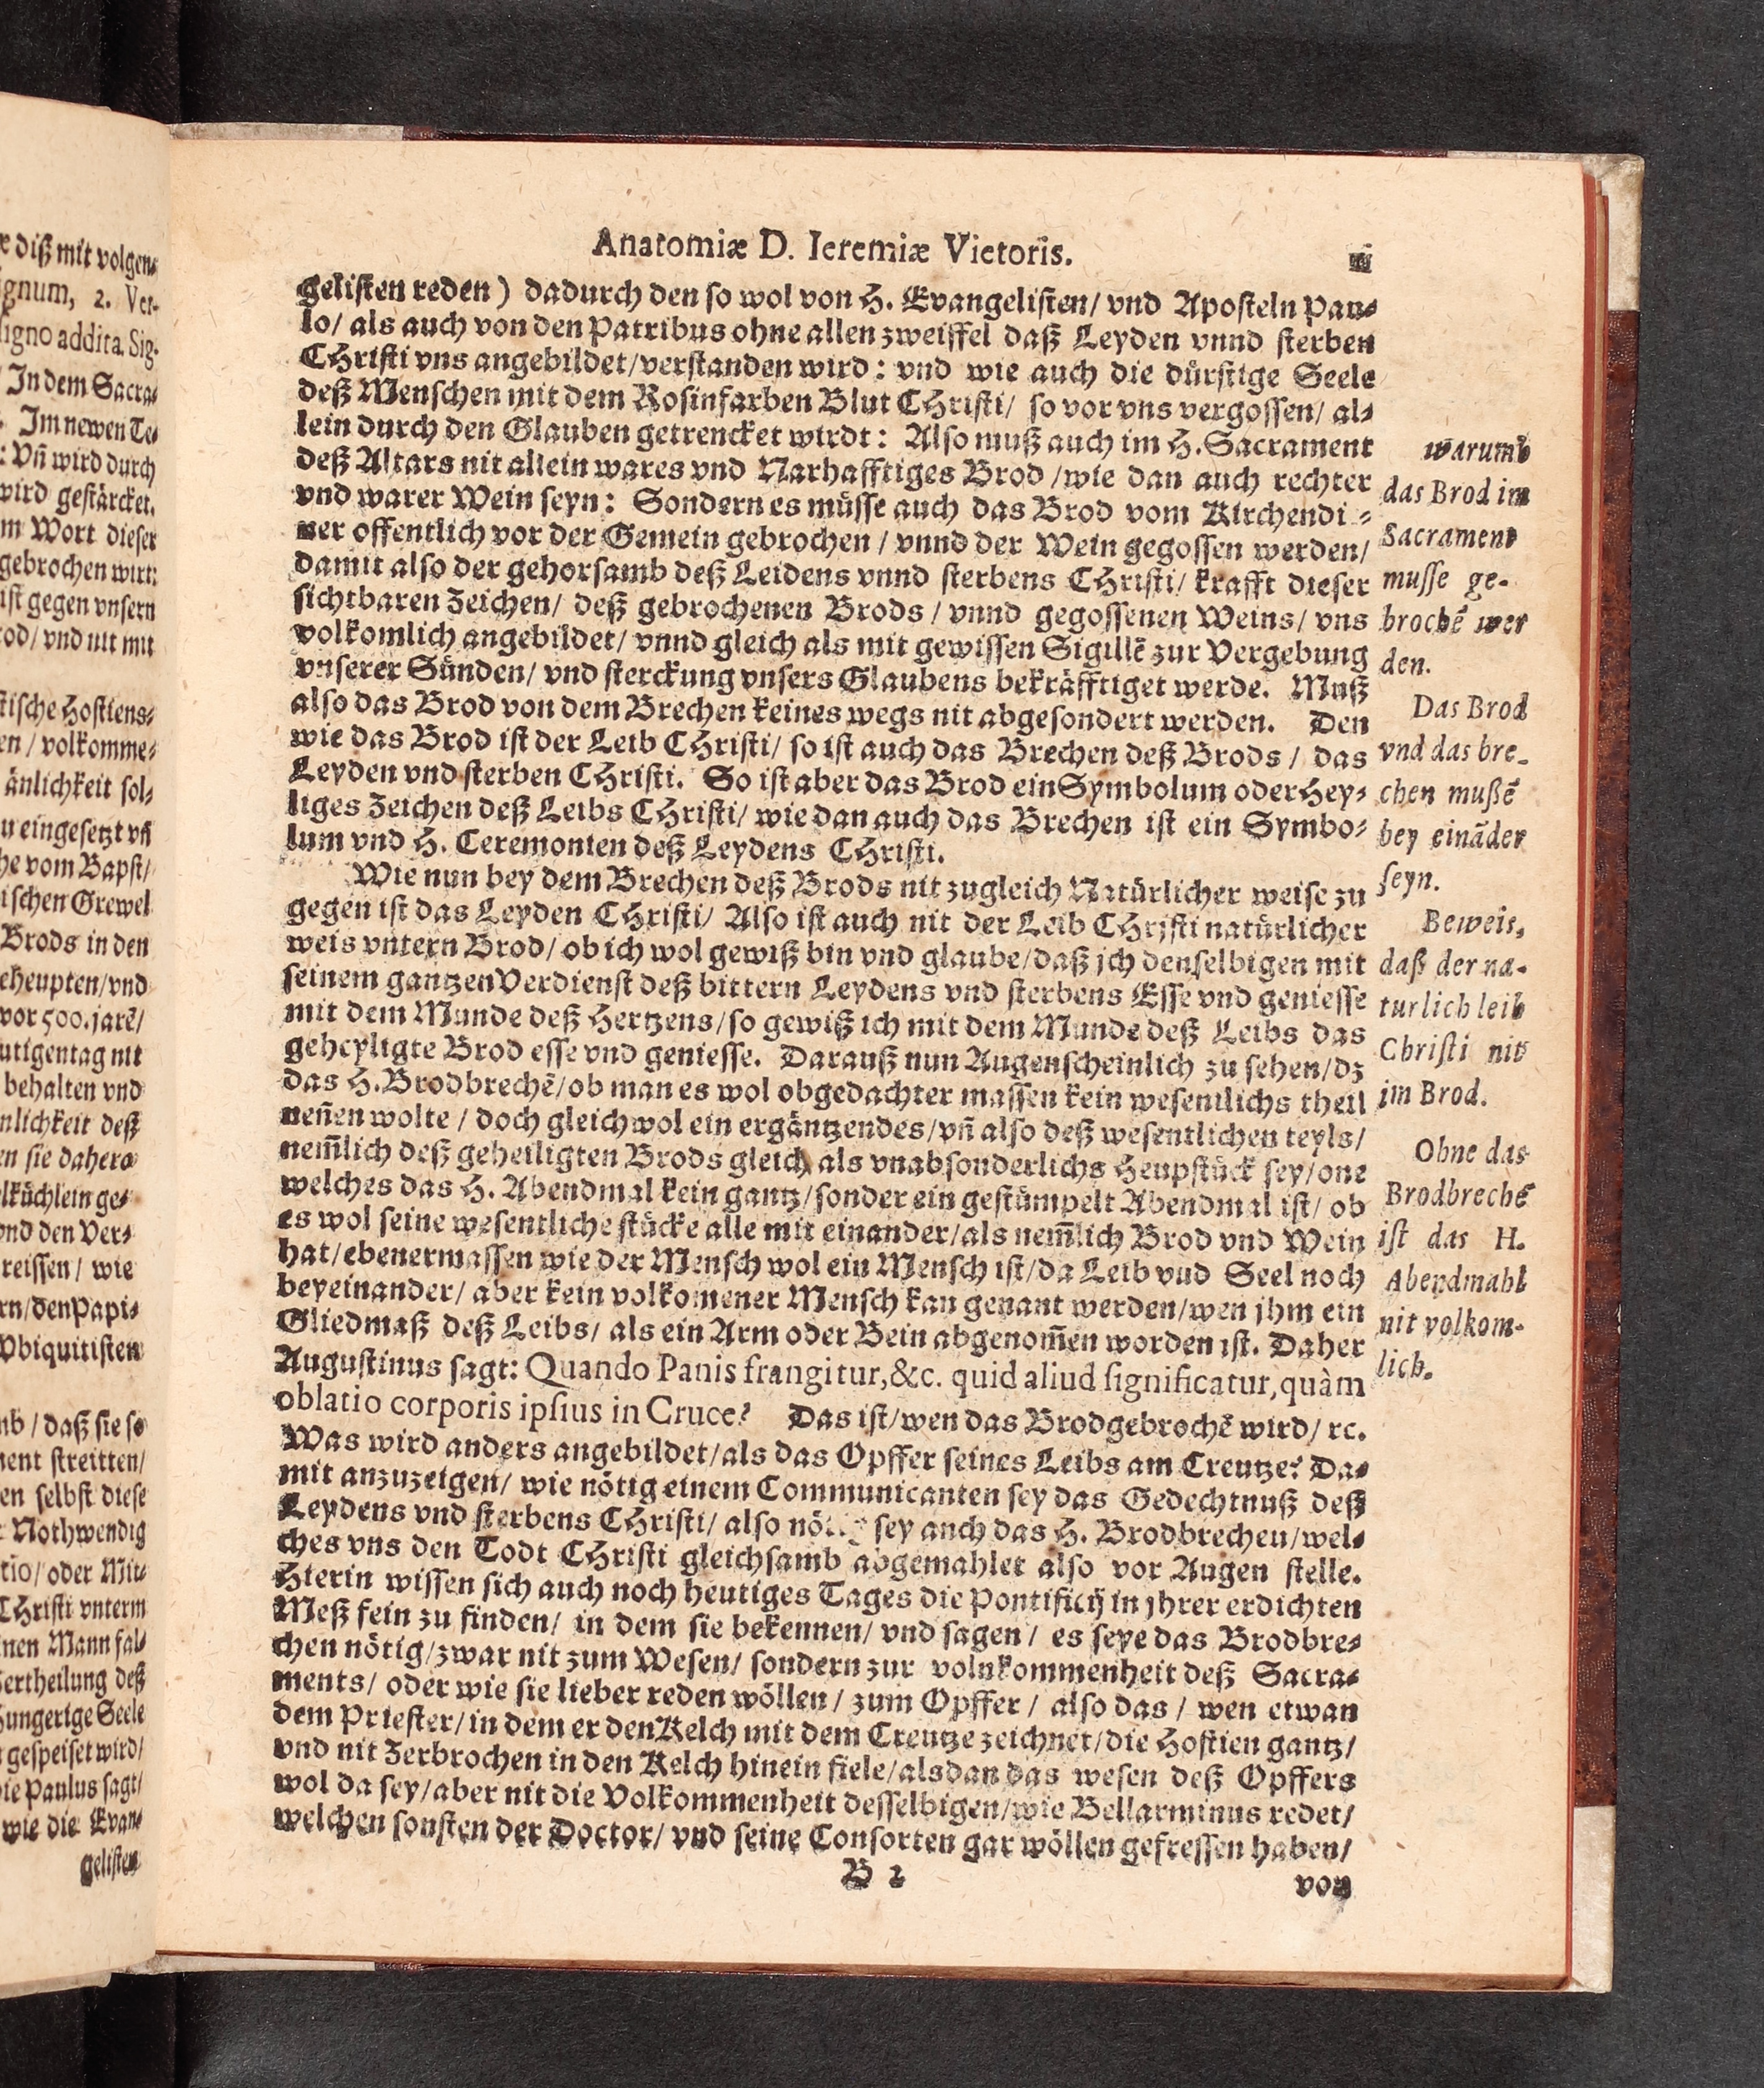 Anatomiæ D. Ieremiæ Vietoris.
gelisten reden) dadurch den so wol von H. Evangelisten/ vnd Aposteln Pau-
lo/ als auch von den Patribus ohne allen zweiffel daß Leyden vnnd sterben
CHristi vns angebildet/verstanden wird: vnd wie auch die dürstige Seele
deß Menschen mit dem Rosinfarben Blut CHristi/ so vor vns vergossen/ al-
lein durch den Glauben getrencket wirdt: Also muß auch im H. Sacrament
deß Altars nit allein wares vnd Narhafftiges Brod /wie dan auch rechter
vnd warer Wein seyn: Sondern es müsse auch das Brod vom Kirchendi-
ner offentlich vor der Gemein gebrochen / vnnd der Wein gegossen werden/
damit also der gehorsamb deß Leidens vnnd sterbens CHristi/ krafft dieser
sichtbaren Zeichen/ deß gebrochenen Brods / vnnd gegossenen Weins/ vns
volkomlich angebildet/ vnnd gleich als mit gewissen Sigillē zur Vergebung
vnserer Sünden/ vnd sterckung vnsers Glaubens bekräfftiget werde. Muß
also das Brod von dem Brechen keines wegs nit abgesondert werden. Den
wie das Brod ist der Leib CHristi/ so ist auch das Brechen deß Brods / das
Leyden vnd sterben CHristi. So ist aber das Brod ein Symbolum oder Hey-
liges Zeichen deß Leibs CHristi/ wie dan auch das Brechen ist ein Symbo-
lum vnd H. Ceremonien deß Leydens CHristi.
Wie nun bey dem Brechen deß Brods nit zugleich Natürlicher weise zu
gegen ist das Leyden CHristi/ Also ist auch nit der Leib CHristi natürlicher
weis vntern Brod/ ob ich wol gewiß bin vnd glaube/daß jch denselbigen mit
seinem gantzen Verdienst deß bittern Leydens vnd sterbens Esse vnd geniesse
mit dem Munde deß Hertzens/so gewiß ich mit dem Munde deß Leibs das
geheyligte Brod esse vnd geniesse. Darauß nun Augenscheinlich zu sehen/dz
das H. Brodbrechē/ob man es wol obgedachter massen kein wesentlichs theil
neñen wolte / doch gleichwol ein ergäntzendes/vñ also deß wesentlichen teyls/
nem̄lich deß geheiligten Brods gleich als vnabsonderlichs Heupstück sey/one
welches das H. Abendmal kein gantz/sonder ein gestümpelt Abendmal ist/ ob
es wol seine wesentliche stücke alle mit einander/als nem̄lich Brod vnd Wein
hat/ebenermassen wie der Mensch wol ein Mensch ist/da Leib vnd Seel noch
beyeinander/ aber kein volkomener Mensch kan genant werden/wen jhm ein
Gliedmaß deß Leibs/ als ein Arm oder Bein abgenom̄en worden ist. Daher
Augustinus sagt: Quando Panis frangitur,&c. quid aliud significatur,quàm
oblatio corporis ipsius in Cruce? Das ist/wen das Brodgebrochē wird/ rc.
Was wird anders angebildet/als das Opffer seines Leibs am Creutze? Da-
mit anzuzeigen/ wie nötig einem Communicanten sey das Gedechtnuß deß
Leydens vnd sterbens CHristi/ also sey auch das H. Brodbrechen/wel-
ches vns den Todt CHristi gleichsamb abgemahlet also vor Augen stelle.
Hierin wissen sich auch noch heutiges Tages die Pontificij in jhrer erdichten
Meß fein zu finden/ in dem sie bekennen/ vnd sagen / es seye das Brodbre-
chen nötig/zwar nit zum Wesen/ sondern zur volnkommenheit deß Sacra-
ments/ oder wie sie lieber reden wöllen / zum Opffer / also das / wen etwan
dem Priester/ in dem er den Kelch mit dem Creutze zeichnet/die Hostien gantz/
vnd nit Zerbrochen in den Kelch hinein fiele/alsdan das wesen deß Opffers
wol da sey/aber nit die Volkommenheit desselbigen/wie Bellarminus redet/
welchen sonsten der Doctor/ vnd seine Consorten gar wöllen gefressen haben/
B 2
von
warumb
das Brod im
Sacrament
musse ge-
brochē wer
den.
Das Brod
vnd das bre-
chen mußē
bey einãder
seyn.
Beweis,
daß der na-
turlich leib
Christi nit
im Brod.
Ohne das
Brodbrechē
ist das H.
Abendmahl
nit volkom-
lich.
diß mit volgen-
ignum, 2. Ver-
signo addita. Sig.
In dem Sacra-
Im newen Te-
: Vñ wird durch
wird gestärcket.
m Wort dieser
gebrochen wirt:
ist gegen vnsern
rod/ vnd nit mit
tische Hostiens-
en / volkomme-
änlichkeit sol-
u eingesetzt vñ
he vom Bapst/
ischen Grewel
Brods in den
eheupten/vnd
vor 500. jarē/
utigentag nit
behalten vnd
nlichkeit deß
en sie dahero
lküchlein ge-
vnd den Ver-
reissen / wie
rn/den Papi-
Vbiquitisten
mb / daß sie so
ment streitten/
en selbst diese
Nothwendig
tio/ oder Mit-
CHristi vnterm
inen Mann fal-
Zertheilung deß
Hungerige Seele
gespeiset wird/
ie Paulus sagt/
wie die Evan-
gelisten